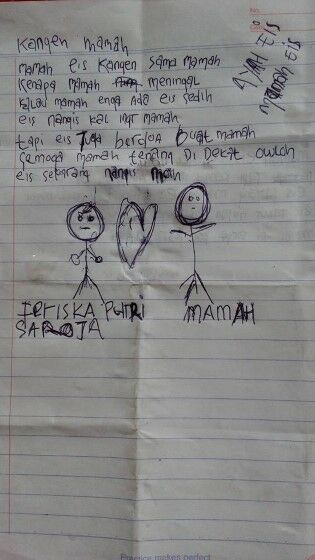 kangen mamah
mamah eis kangen sama mamah
kenapa mamah meninggal
kalau mamah enga ada eis sedih
eis nangis kal ingt mamah
tapi eis Juga berdoa buat mamah
semoga mamah tenang Di Dekat owloh
eis sekarang nangis mah
AYAH EIS
MAMAH EIS
PUTRI
MAMAH
Practice makes perfect